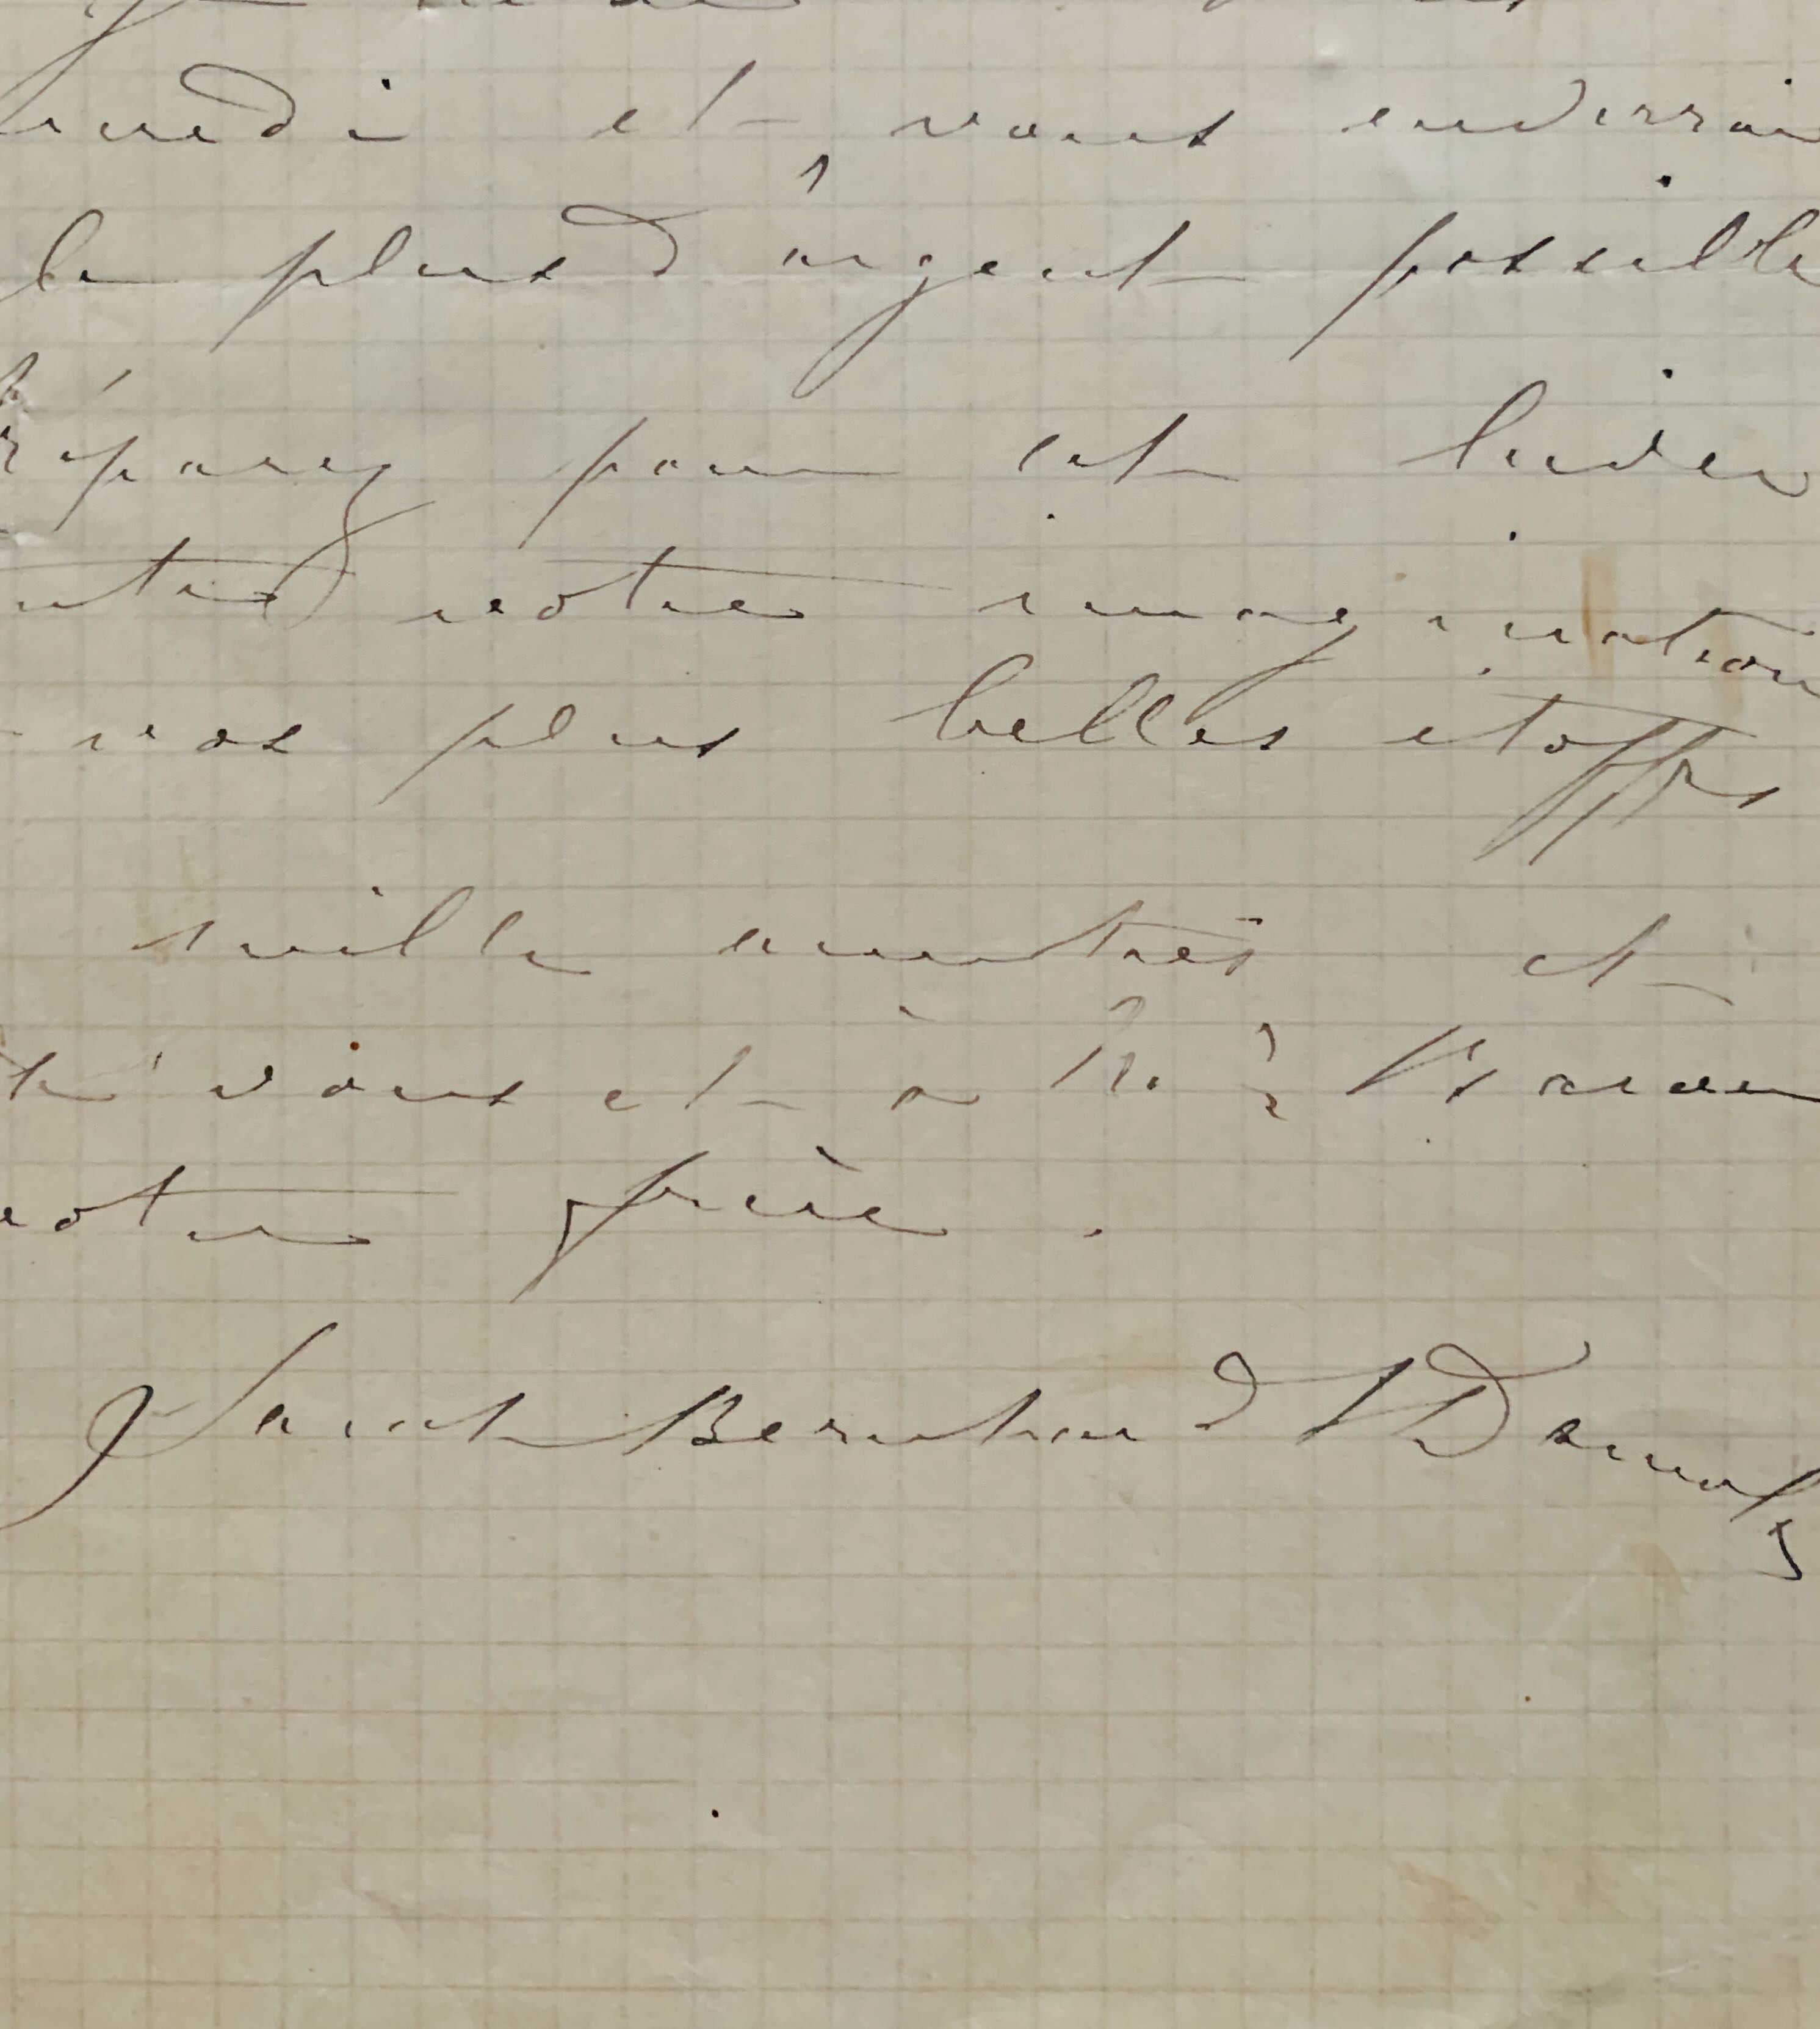 lundi et vous enverrai
le plus d'argent possible
réparez pour cet hiver
votre imagination
vos plus belles étoffes
mille amitiés et
vous et à
votre frère.
Sarah Bernhardt Damala